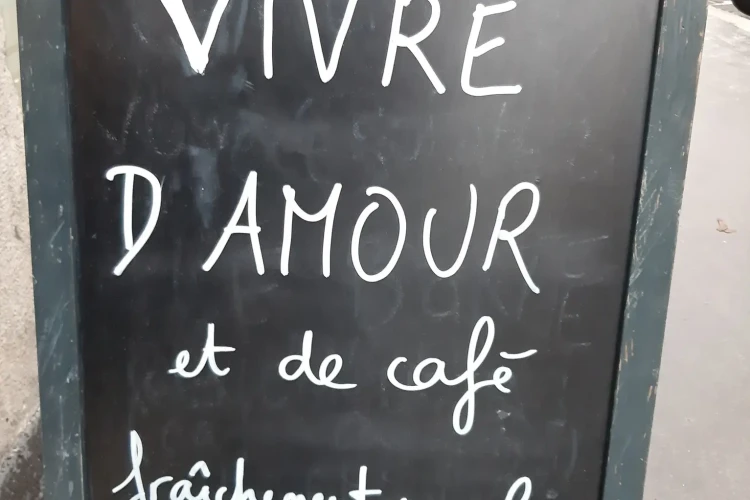 VIVRE
D AMOUR
et de café
fraîchement